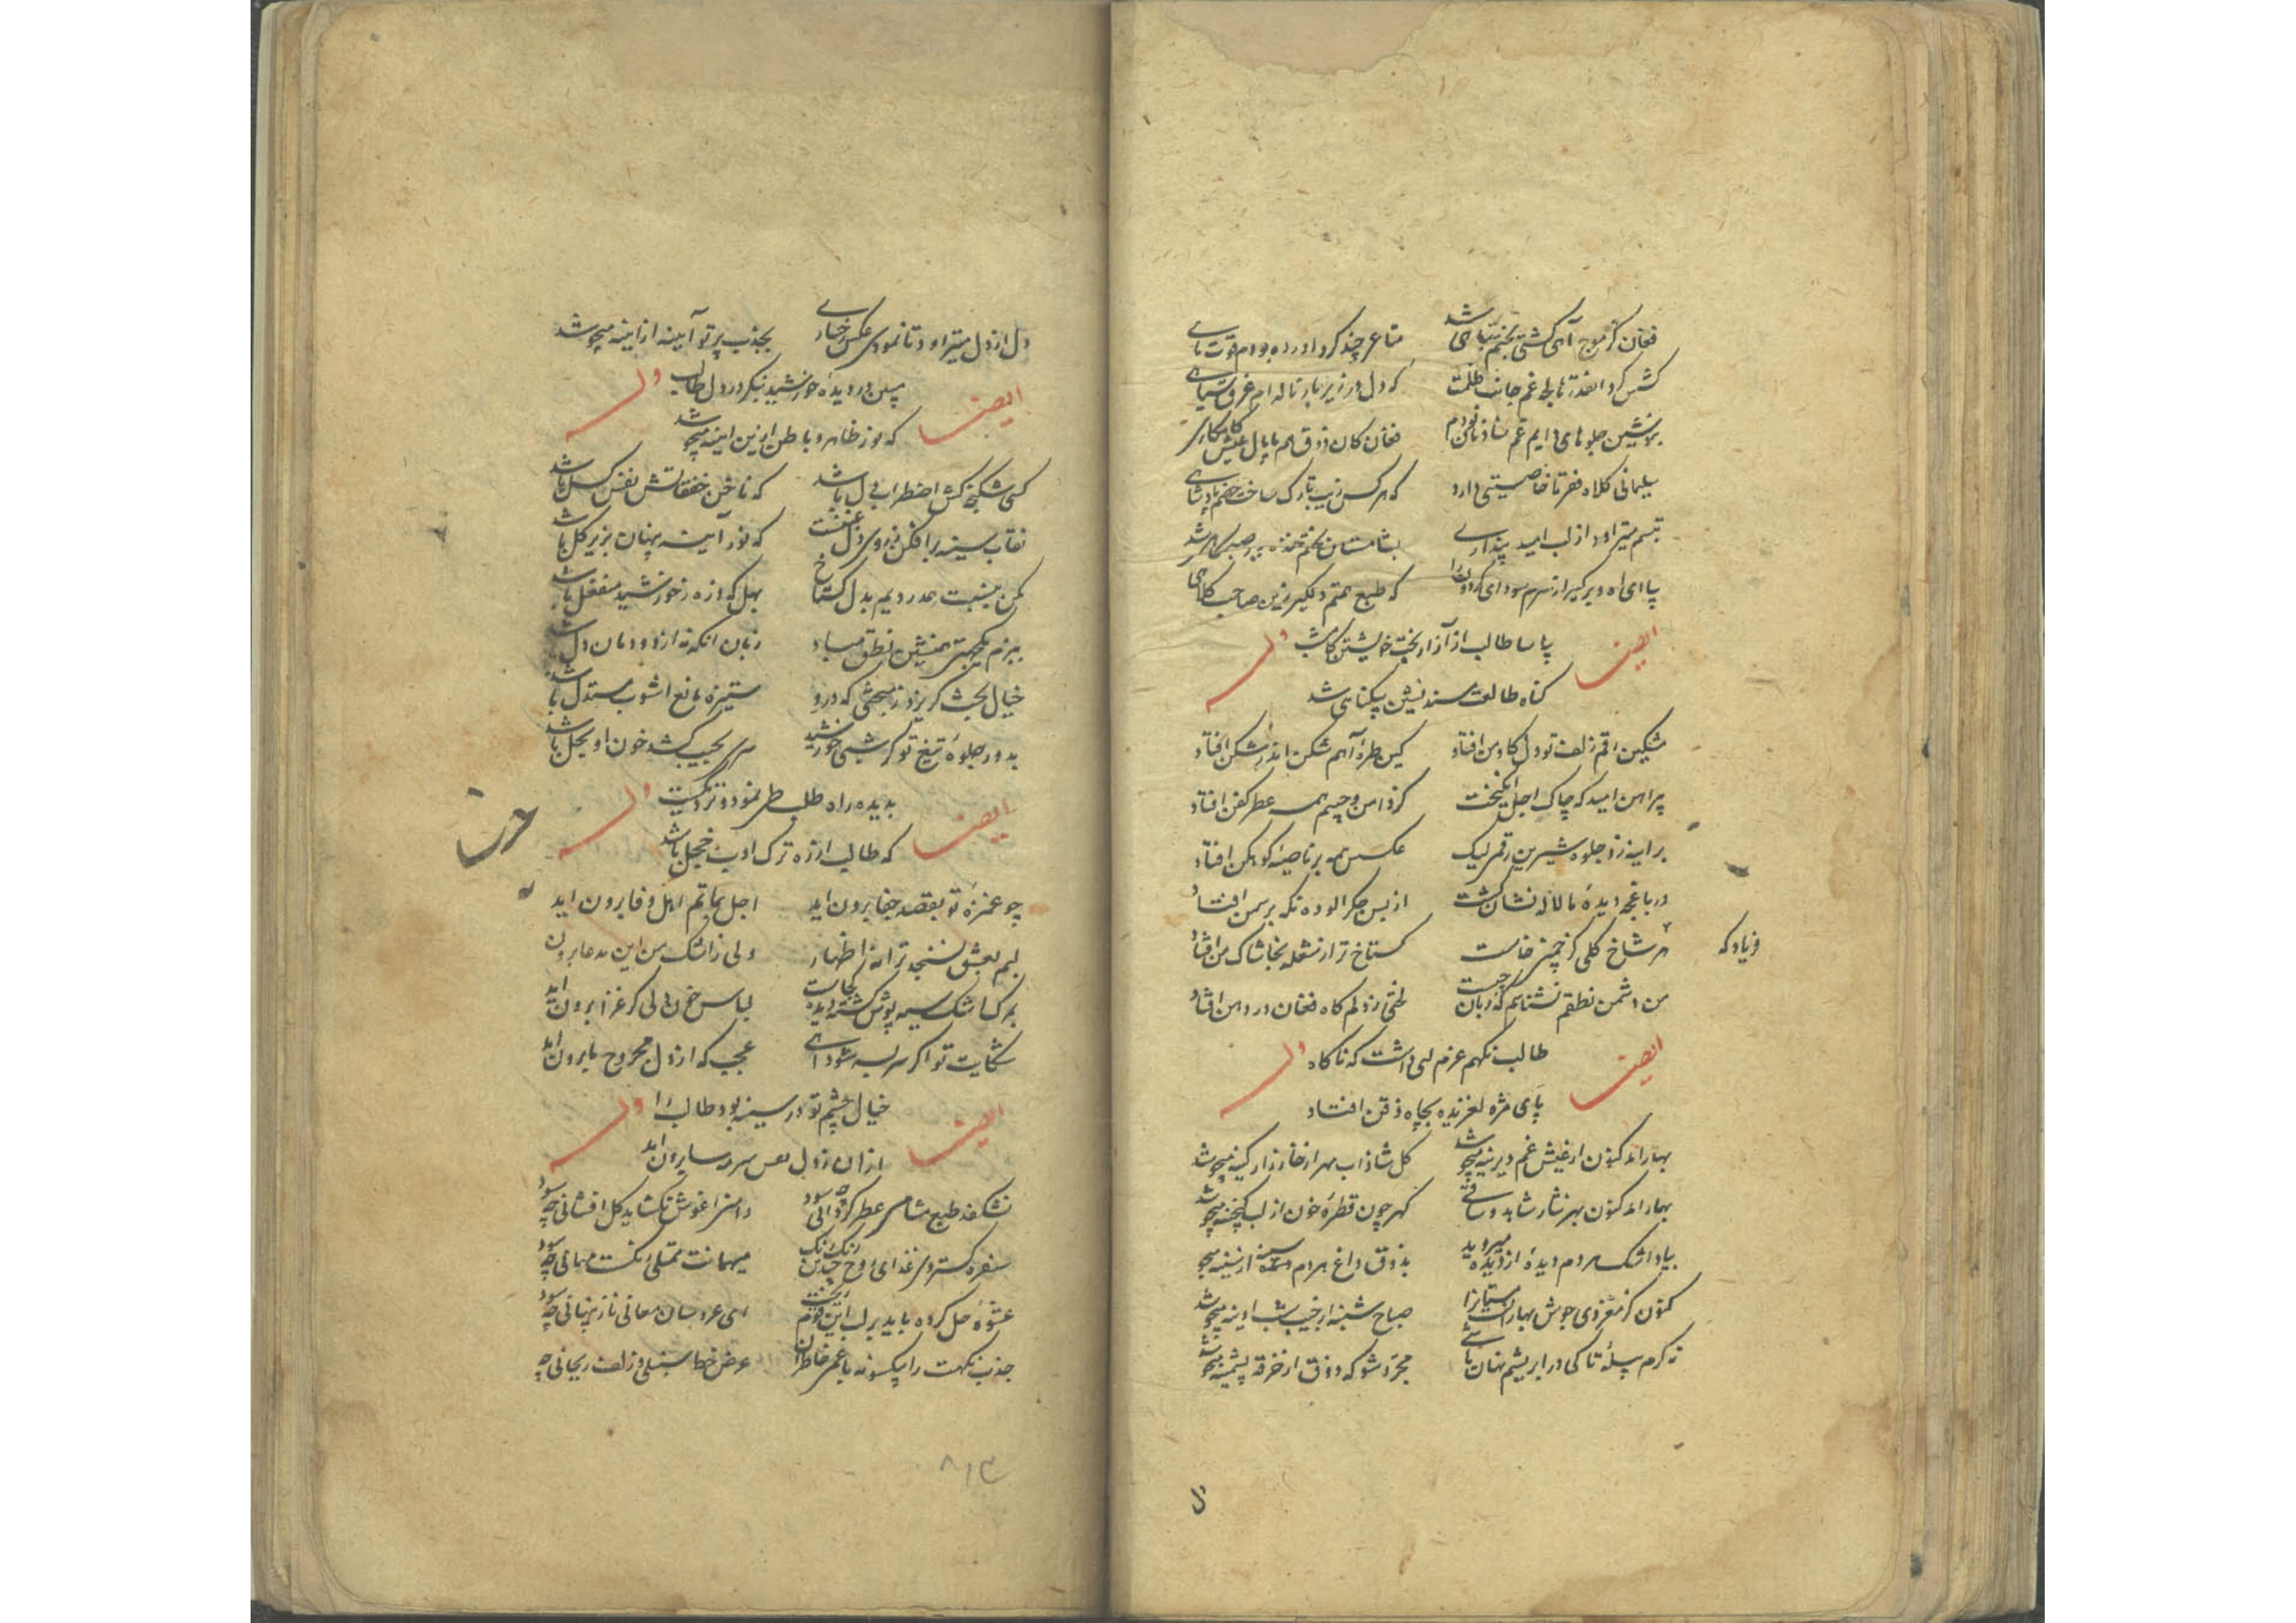 فغان کز موج آهی کشتی بختم تباهی شد متاعی چند کرد آورده بودم قوت ماهی شد
که دل در زیر بار ناله ام غرق سیاهی شد
سلیمانی کلاه فقر تا خاصیتی دارد که هر کس زیب تارک ساخت چشم پادشاهی شد
تبسم میتراود از لب امید پنداری
بیا ای آه و برگیر از سرم سودای گردون را که طبع همتم دلگیر زین صاحب کلاهی شد
ایضا بیا سا طالب از آزار بخت خویشتن کامشب وله
گناه طالعت مسند نشین بیگناهی شد
مشکین رقم زلف تو در دل کاوس افتاد کین طره آهم شکن اندر شکن افتاد
پیراهن امید که چاک اجل انگیخت کز دامن و جیبم همه عطر کفن افتاد
بر آینه زد جلوه شیرین رقم لیک عکس همه بر ناصیه کوهکن افتاد
در باغچه دیده ما لاله نشان گشت از بس جگر آلوده نگه بر سمن افتاد
فریاد که
هر شاخ گلی کز چمن خاست گستاخ تر از شعله بخاشاک من افتاد
من دشمن نطقم نشناسم که زبان چیست لختی ز دلم گاه فغان در دهن افتاد
ایضا طالب نگهم عزم لبی داشت که ناگاه وله
پای مژه لغزیده بچاه ذقن افتاد
بهار آمد کنون از عیش غم دیرینه میجوشد گل شاداب مهر از خارزار کینه میجوشد
بهار آمد کنون بهر نثار شاهد و ساقی گهر چون قطره خون از لب گنجینه میجوشد
بیاد اشک مردم دیده از دیده میروید بذوق داغ هر دم سینه از سینه میجوشد
کنون کز مغز دی جوش بهارانست مستان را صباح شنبه از جیب شب آدینه میجوشد
نه کرم پیله تا کی در ابریشم نهان باشی مجرد شو که ذوق از خرقه پشمینه میجوشد
دل از دل میتراود تا نمودی عکس رخساری بجذب پرتو آیینه از آیینه میجوشد
ایضا ببین در دیده خورشید بنگر در دل طالب وله
که نور ظاهر و باطن ازین آینه میجوشد
کسی شکنجه کش اضطراب دل باشد که ناخن خفقانش نفس گسل باشد
نقاب سینه برافکن ز روی دل غفلت که نور آینه پنهان بزیر گل باشد
مکن به نسبت همدردیم بدل گستاخ بهل که ذره ز خورشید منفعل باشد
به بزم همنشین نطق مباد زبان آنکه نه از دودمان دل باشد
خیال بحث گریزد ز مبحثی که درو ستیزه مانع آشوب مستدل باشد
بدور جلوه تیغ تو گر شبی خورشید سری بجیب کشد خون او بحل باشد
ایضا بدیده راه طلب طی نمود و نزدیکست وله
که طالب از ره ترک ادب خجل باشد
چو غمزه تو بقصد جفا برون آید اجل بماتم اهل وفا برون آید
لبم بعشق نسنجد ترانه اظهار ولی ز اشک من این مدعا برون آید
لباس خون دلی کز عزا برون آید
شکایت تو اگر سر بسر شود آهی عجب که از دل مجروح ما برون آید
ایضا خیال چشم تو در سینه بود طالب را وله
از آن ز دل نفس سرمه سا برون آید
نشکفد طبع مشامی عطر گردانی چه سود دامن آغوش نگشاید گل افشانی چه سود
سفره گستردن غذای روح چیدن رنگ رنگ میهمانت ممتلی نگشت مهمانی چه سود
عشوه حل کرده باید بر لب این قوم ریخت ای عروسان معانی ناز پنهانی چه سود
عرض خط سنبلی و زلف ریحانی چه
۸۱۳